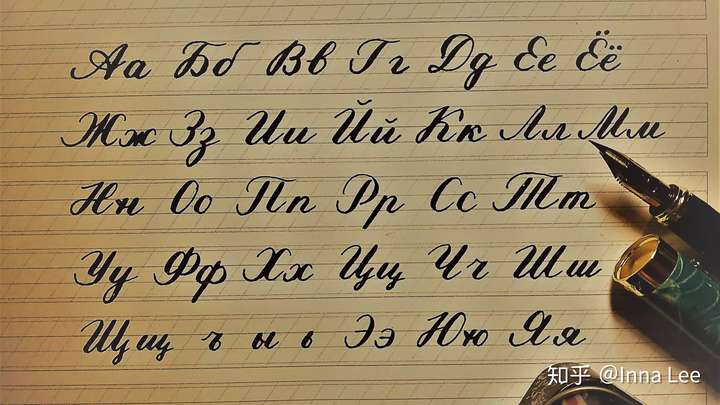 Аа Бб Вв Гг Дд Ее Ёё
Жж Зз Ии Йй Кк Лл Мм
Нн Оо Пп Рр Сс Тт
Уу Фф Хх Цц Чч Шш
Щщ ъ ы ь Ээ Юю Яя
知乎 @Inna Lee